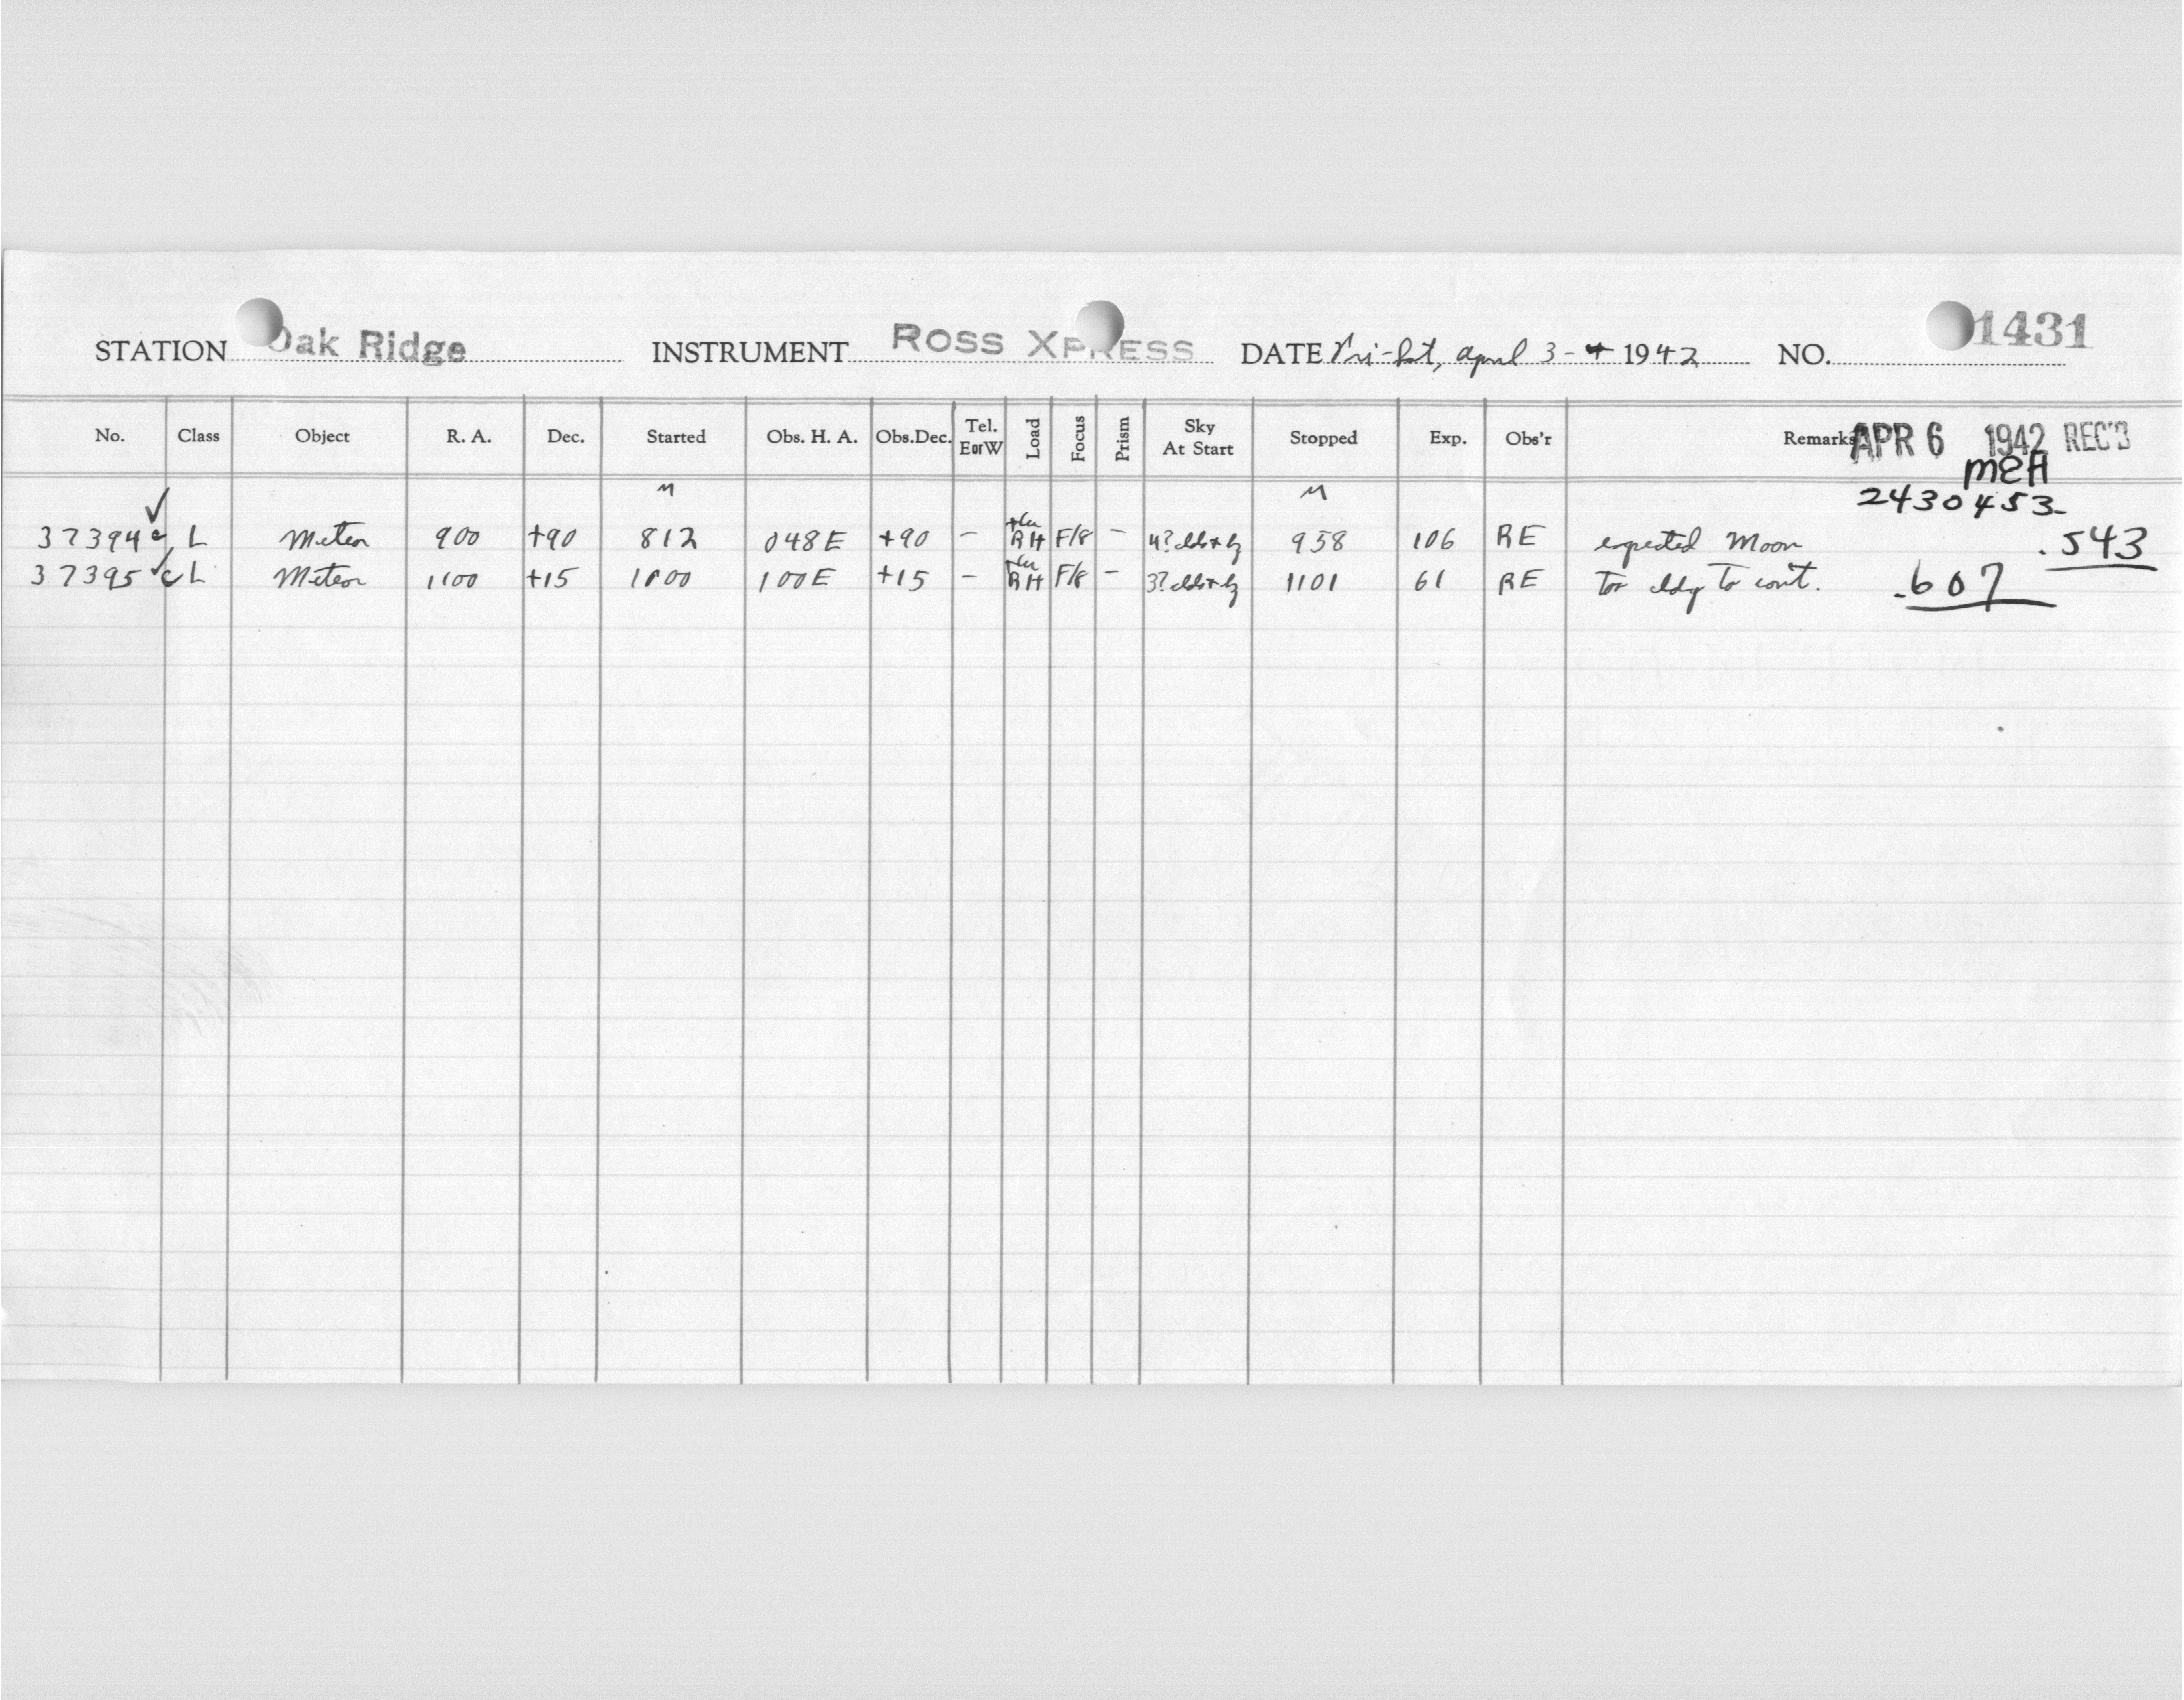 STATION Oak Ridge INSTRUMENT ROSS XPRESS DATE Fri-Sat, April 3-4 1942 NO. 1431
No. Class Object R. A. Dec. Started Obs. H. A. Obs.Dec. Tel. EorW Load Focus Prism Sky At Start Stopped Exp. Obs'r Remarks APR 6 1942 REC'D
MEH
M M 2430453
37394 c L Meteor 900 +90 812 048E +90 - RH F/8 - 4? clds+hz 958 106 RE expected Moon .543
37395 c L Meteor 1100 +15 1000 100E +15 - RH F/8 - 3? clds+hz 1101 61 RE Too cldy to cont. .607